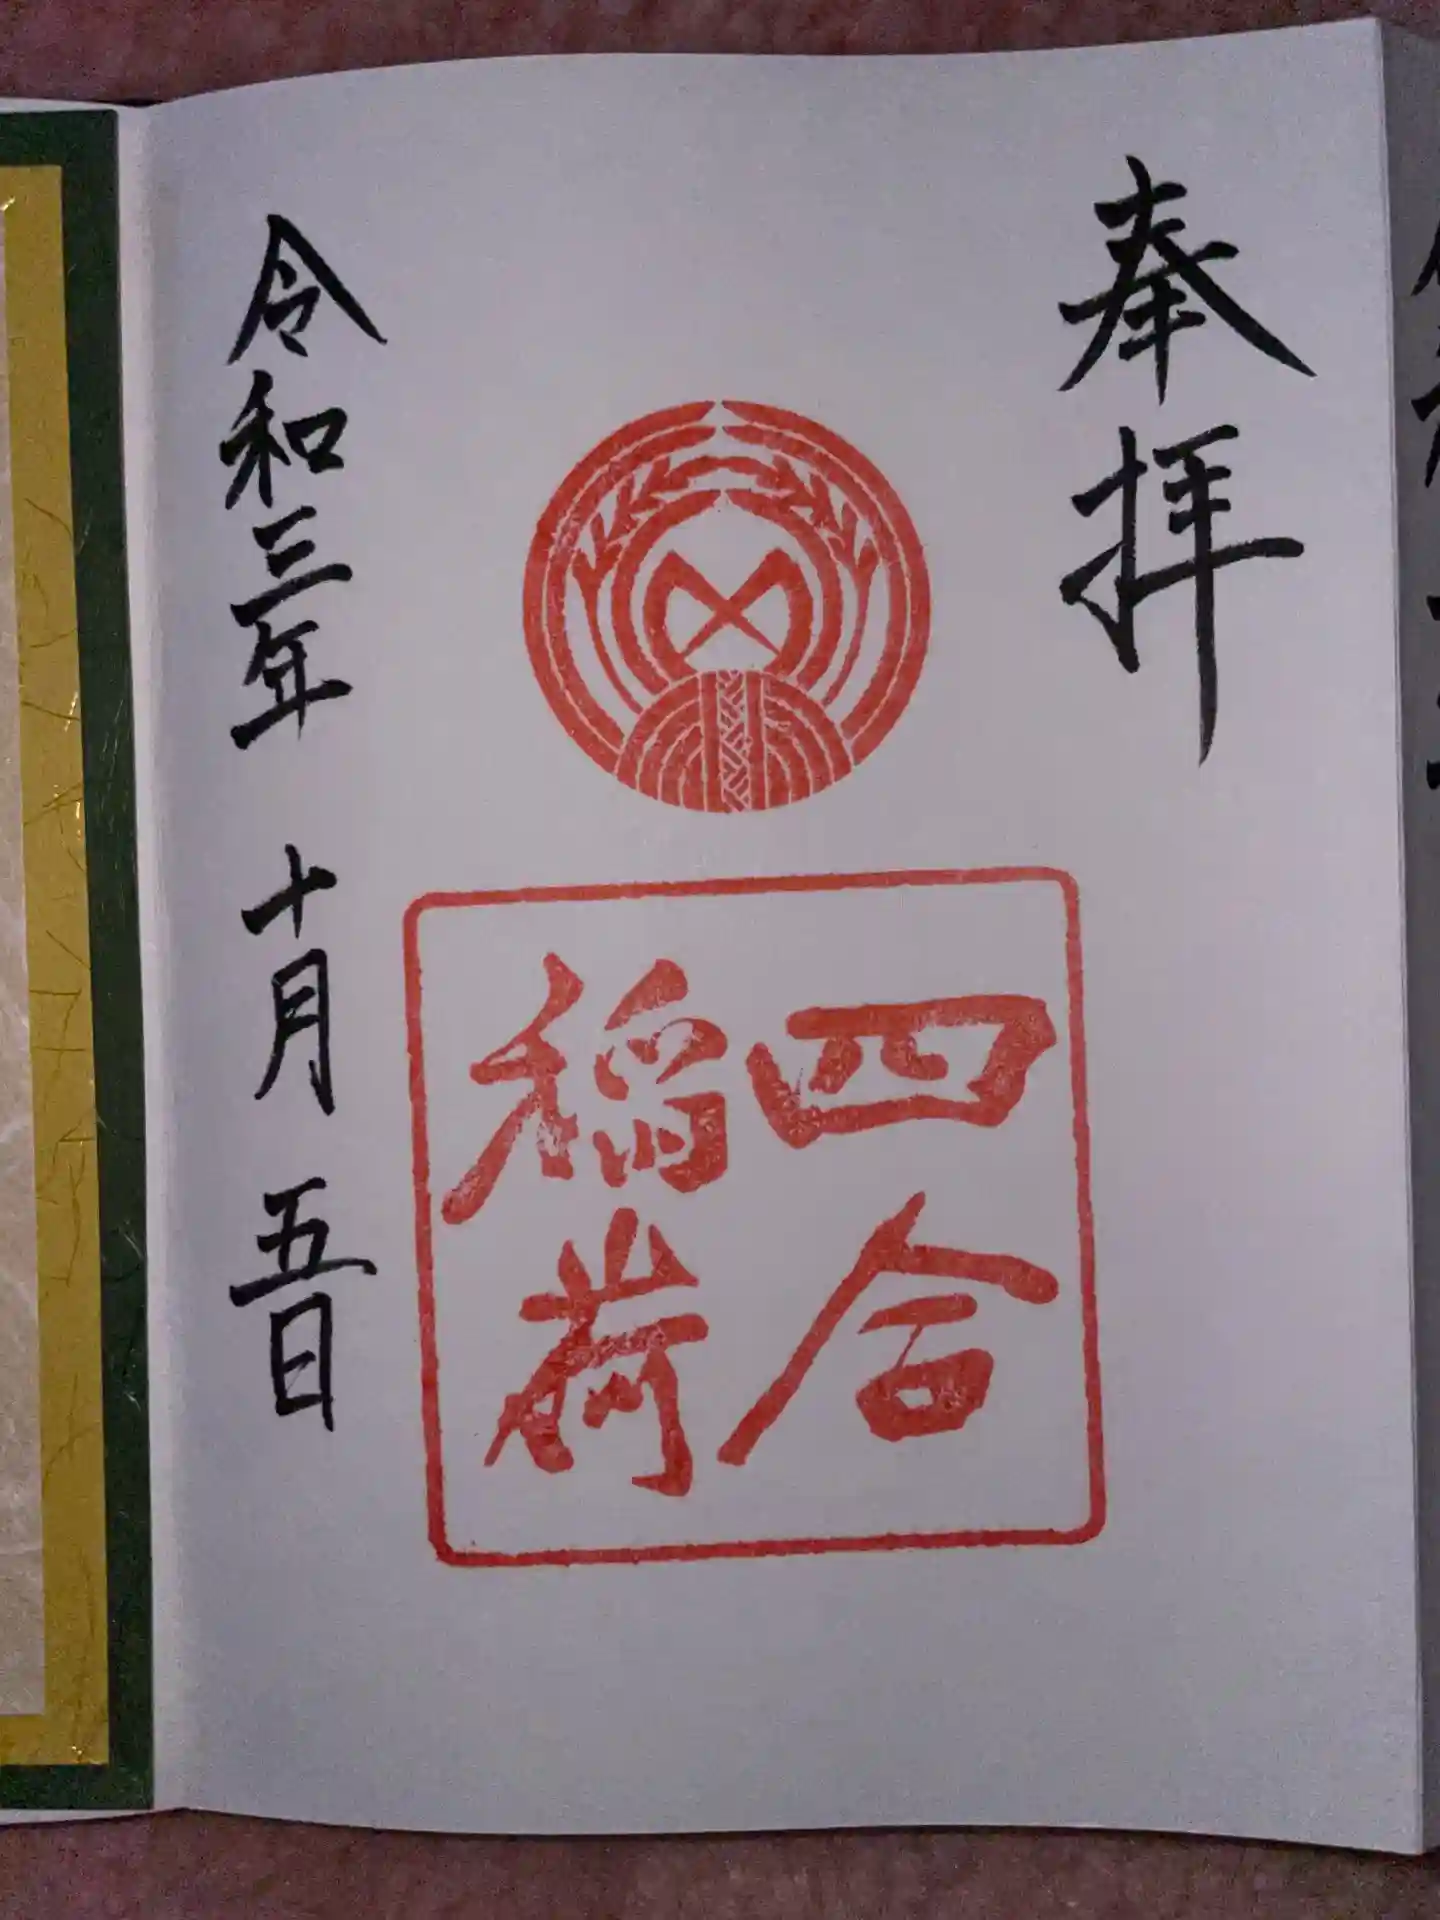 奉拝
四合
稲荷
令和三年 十月 五日